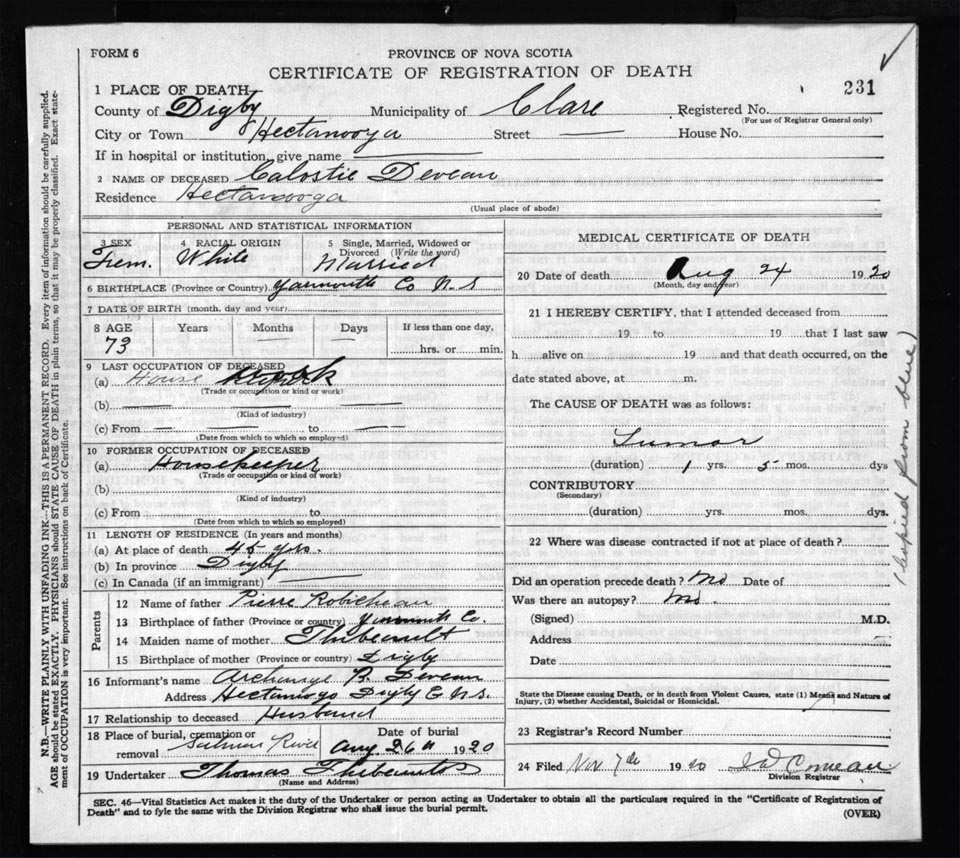 FORM 6
PROVINCE OF NOVA SCOTIA
CERTIFICATE OF REGISTRATION OF DEATH
231
1 PLACE OF DEATH
County of Digby Municipality of Clare Registered No.
(For use of Registrar General only)
City or Town Hectanooga Street — House No.
If in hospital or institution, give name —
2 NAME OF DECEASED Calostie Deveau
Residence Hectanooga
(Usual place of abode)
PERSONAL AND STATISTICAL INFORMATION
3 SEX 4 RACIAL ORIGIN 5 Single, Married, Widowed or Divorced (Write the word)
Fem. White Married
6 BIRTHPLACE (Province or Country) Yarmouth Co N.S
7 DATE OF BIRTH (month, day and year)
8 AGE Years Months Days If less than one day,
73 — — hrs. or min.
9 LAST OCCUPATION OF DECEASED
(a) House
(Trade or occupation or kind or work)
(b) — — —
(Kind of industry)
(c) From — — to — —
(Date from which to which so employed)
10 FORMER OCCUPATION OF DECEASED
(a) Housekeeper
(Trade or occupation or kind of work)
(b)
(Kind of industry)
(c) From to
(Date from which to which so employed)
11 LENGTH OF RESIDENCE (In years and months)
(a) At place of death 45 yrs.
(b) In province Digby
(c) In Canada (if an immigrant) —
Parents
12 Name of father Pierre Robicheau
13 Birthplace of father (Province or country) Yarmouth Co.
14 Maiden name of mother Thibeault
15 Birthplace of mother (Province or country) Digby
16 Informant's name Archange B. Deveau
Address Hectanoogo Digby Co N.S.
17 Relationship to deceased Husband
18 Place of burial, cremation or removal Salmon River Date of burial Aug 26th 1920
19 Undertaker Thomas Thibeault
(Name and Address)
MEDICAL CERTIFICATE OF DEATH
20 Date of death Aug 24 1920
(Month, day and year)
21 I HEREBY CERTIFY, that I attended deceased from
19 to 19 that I last saw
h alive on 19 and that death occurred, on the
date stated above, at m.
The CAUSE OF DEATH was as follows:
Tumor
(duration) 1 yrs. 5 mos. dys
CONTRIBUTORY
(Secondary)
(duration) yrs. mos. dys.
22 Where was disease contracted if not at place of death?
Did an operation precede death? No Date of
Was there an autopsy? No
(Signed) M.D.
Address
Date
State the Disease causing Death, or in death from Violent Causes, state (1) Means and Nature of
Injury, (2) whether Accidental, Suicidal or Homicidal.
23 Registrar's Record Number
24 Filed Nov 7th 1920 Comeau
Division Registrar
SEC. 46—Vital Statistics Act makes it the duty of the Undertaker or person acting as Undertaker to obtain all the particulars required in the "Certificate of Registration of
Death" and to fyle the same with the Division Registrar who shall issue the burial permit.
(OVER)
N.B.—WRITE PLAINLY WITH UNFADING INK—THIS IS A PERMANENT RECORD. Every item of information should be carefully supplied.
AGE should be stated EXACTLY. PHYSICIANS should STATE CAUSE OF DEATH in plain terms, so that it may be properly classified. Exact state-
ment of OCCUPATION is very important. See instructions on back of Certificate.
(Copied from blue)